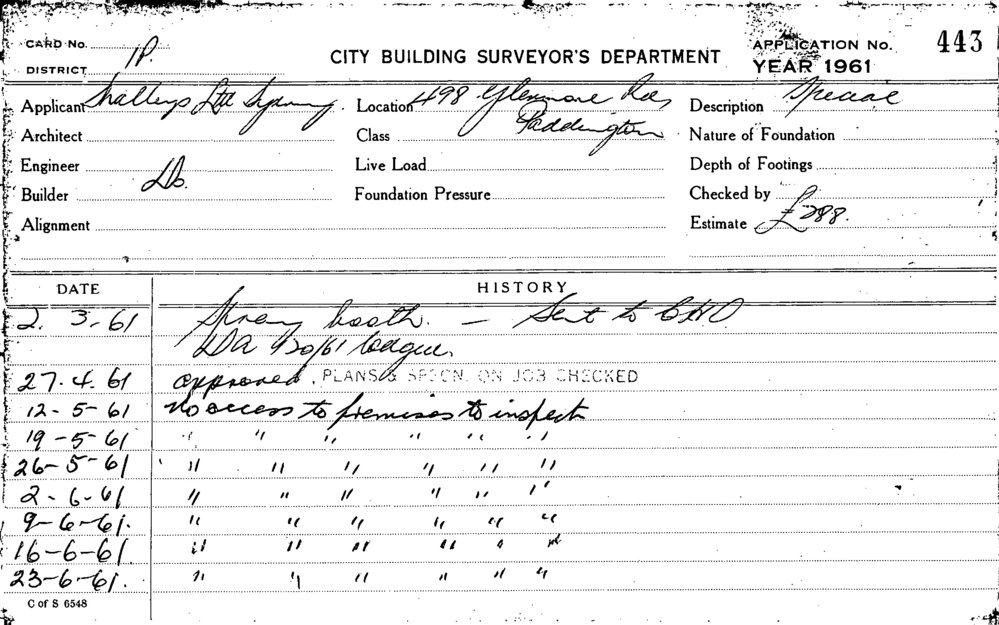 CARD No. 1P.
DISTRICT
CITY BUILDING SURVEYOR'S DEPARTMENT
APPLICATION No. 443
YEAR 1961
Applicant Ltd
Location 498 Glenmore Rd,
Paddington
Description Special
Architect
Class
Nature of Foundation
Engineer
Live Load
Depth of Footings
Builder Do.
Foundation Pressure
Checked by
Alignment
Estimate £288.
DATE HISTORY
2. 3. 61 Spray booth. — Sent to CHO.
DA 920/61 
27. 4. 61 approved. PLANS & SPECN. ON JOB CHECKED
12-5-61 No access to premises to inspect
19-5-61 " " " " " "
26-5-61 " " " " " "
2-6-61 " " " " " "
9-6-61. " " " " " "
16-6-61 " " " " " "
23-6-61. " " " " " "
C of S 6548